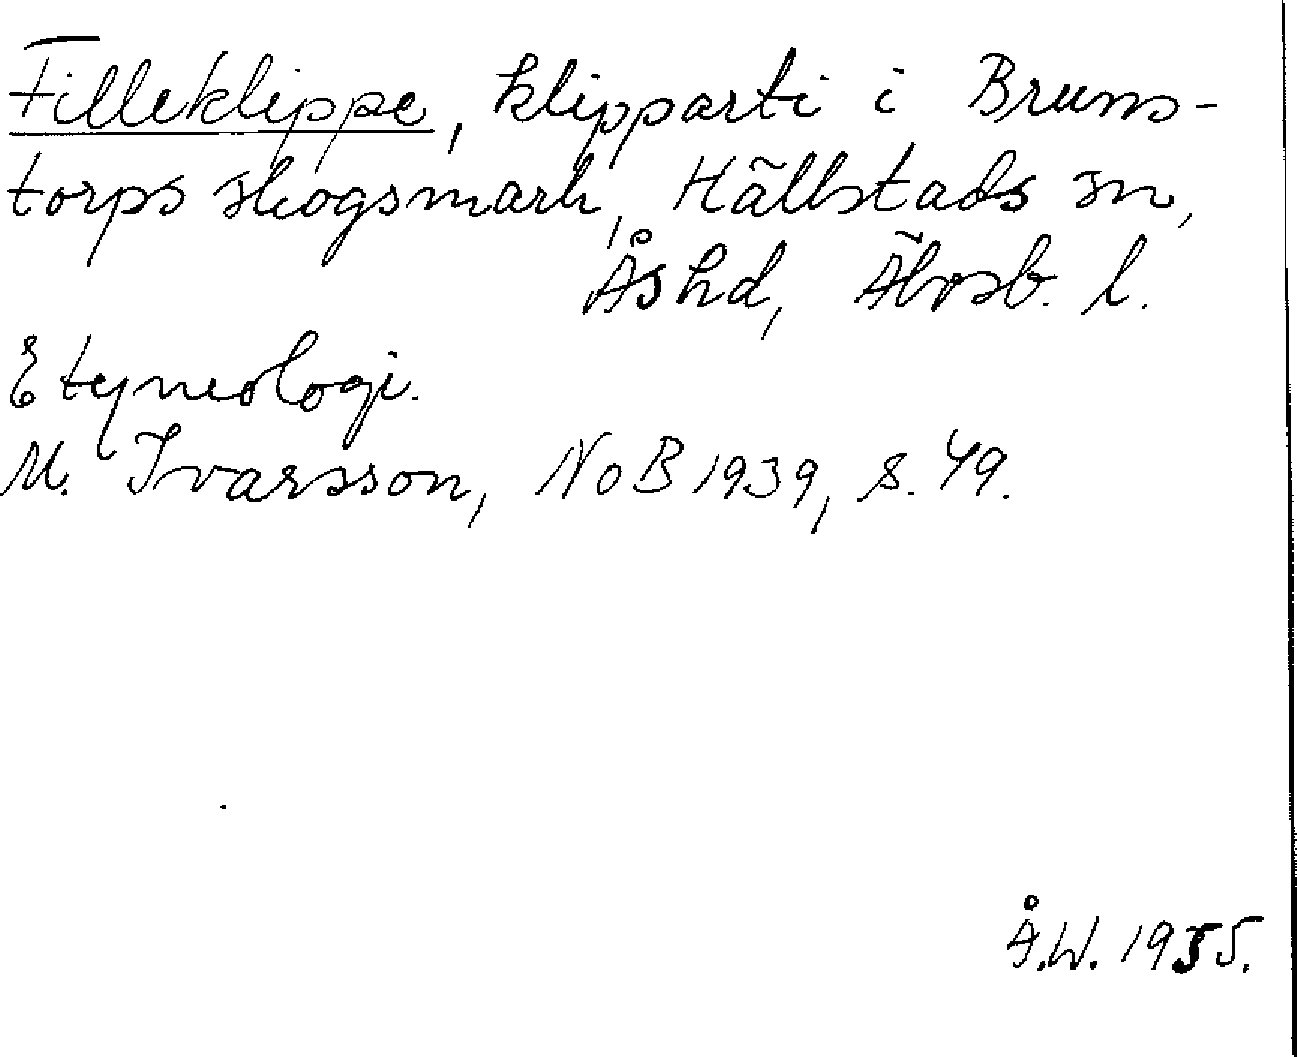 Filleklippe, klipparti i Bruns-
torps skogsmark, Hällstads sn,
Ås hd, Älvsb. l.
Etymologi.
M. Ivarsson, NoB 1939, s. 49.
Å.W. 1955.